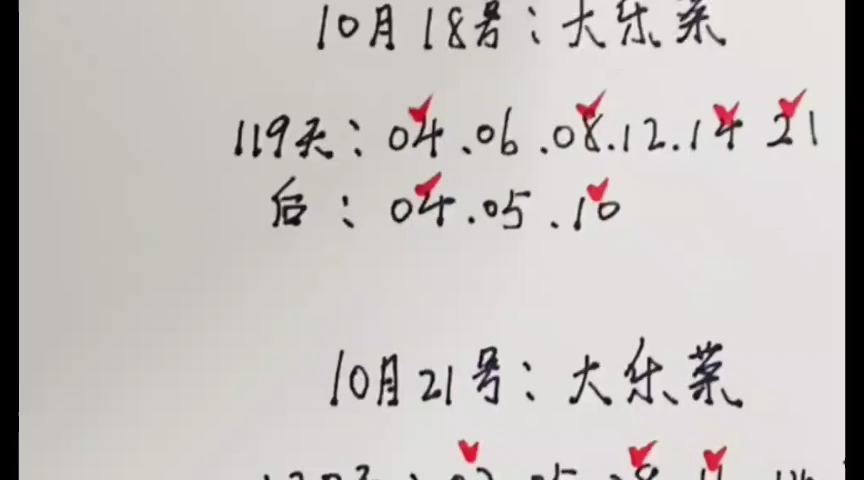 10月18号：大乐菜
119天：04.06.08.12.14 21
后：04.05.10
10月21号：大乐菜